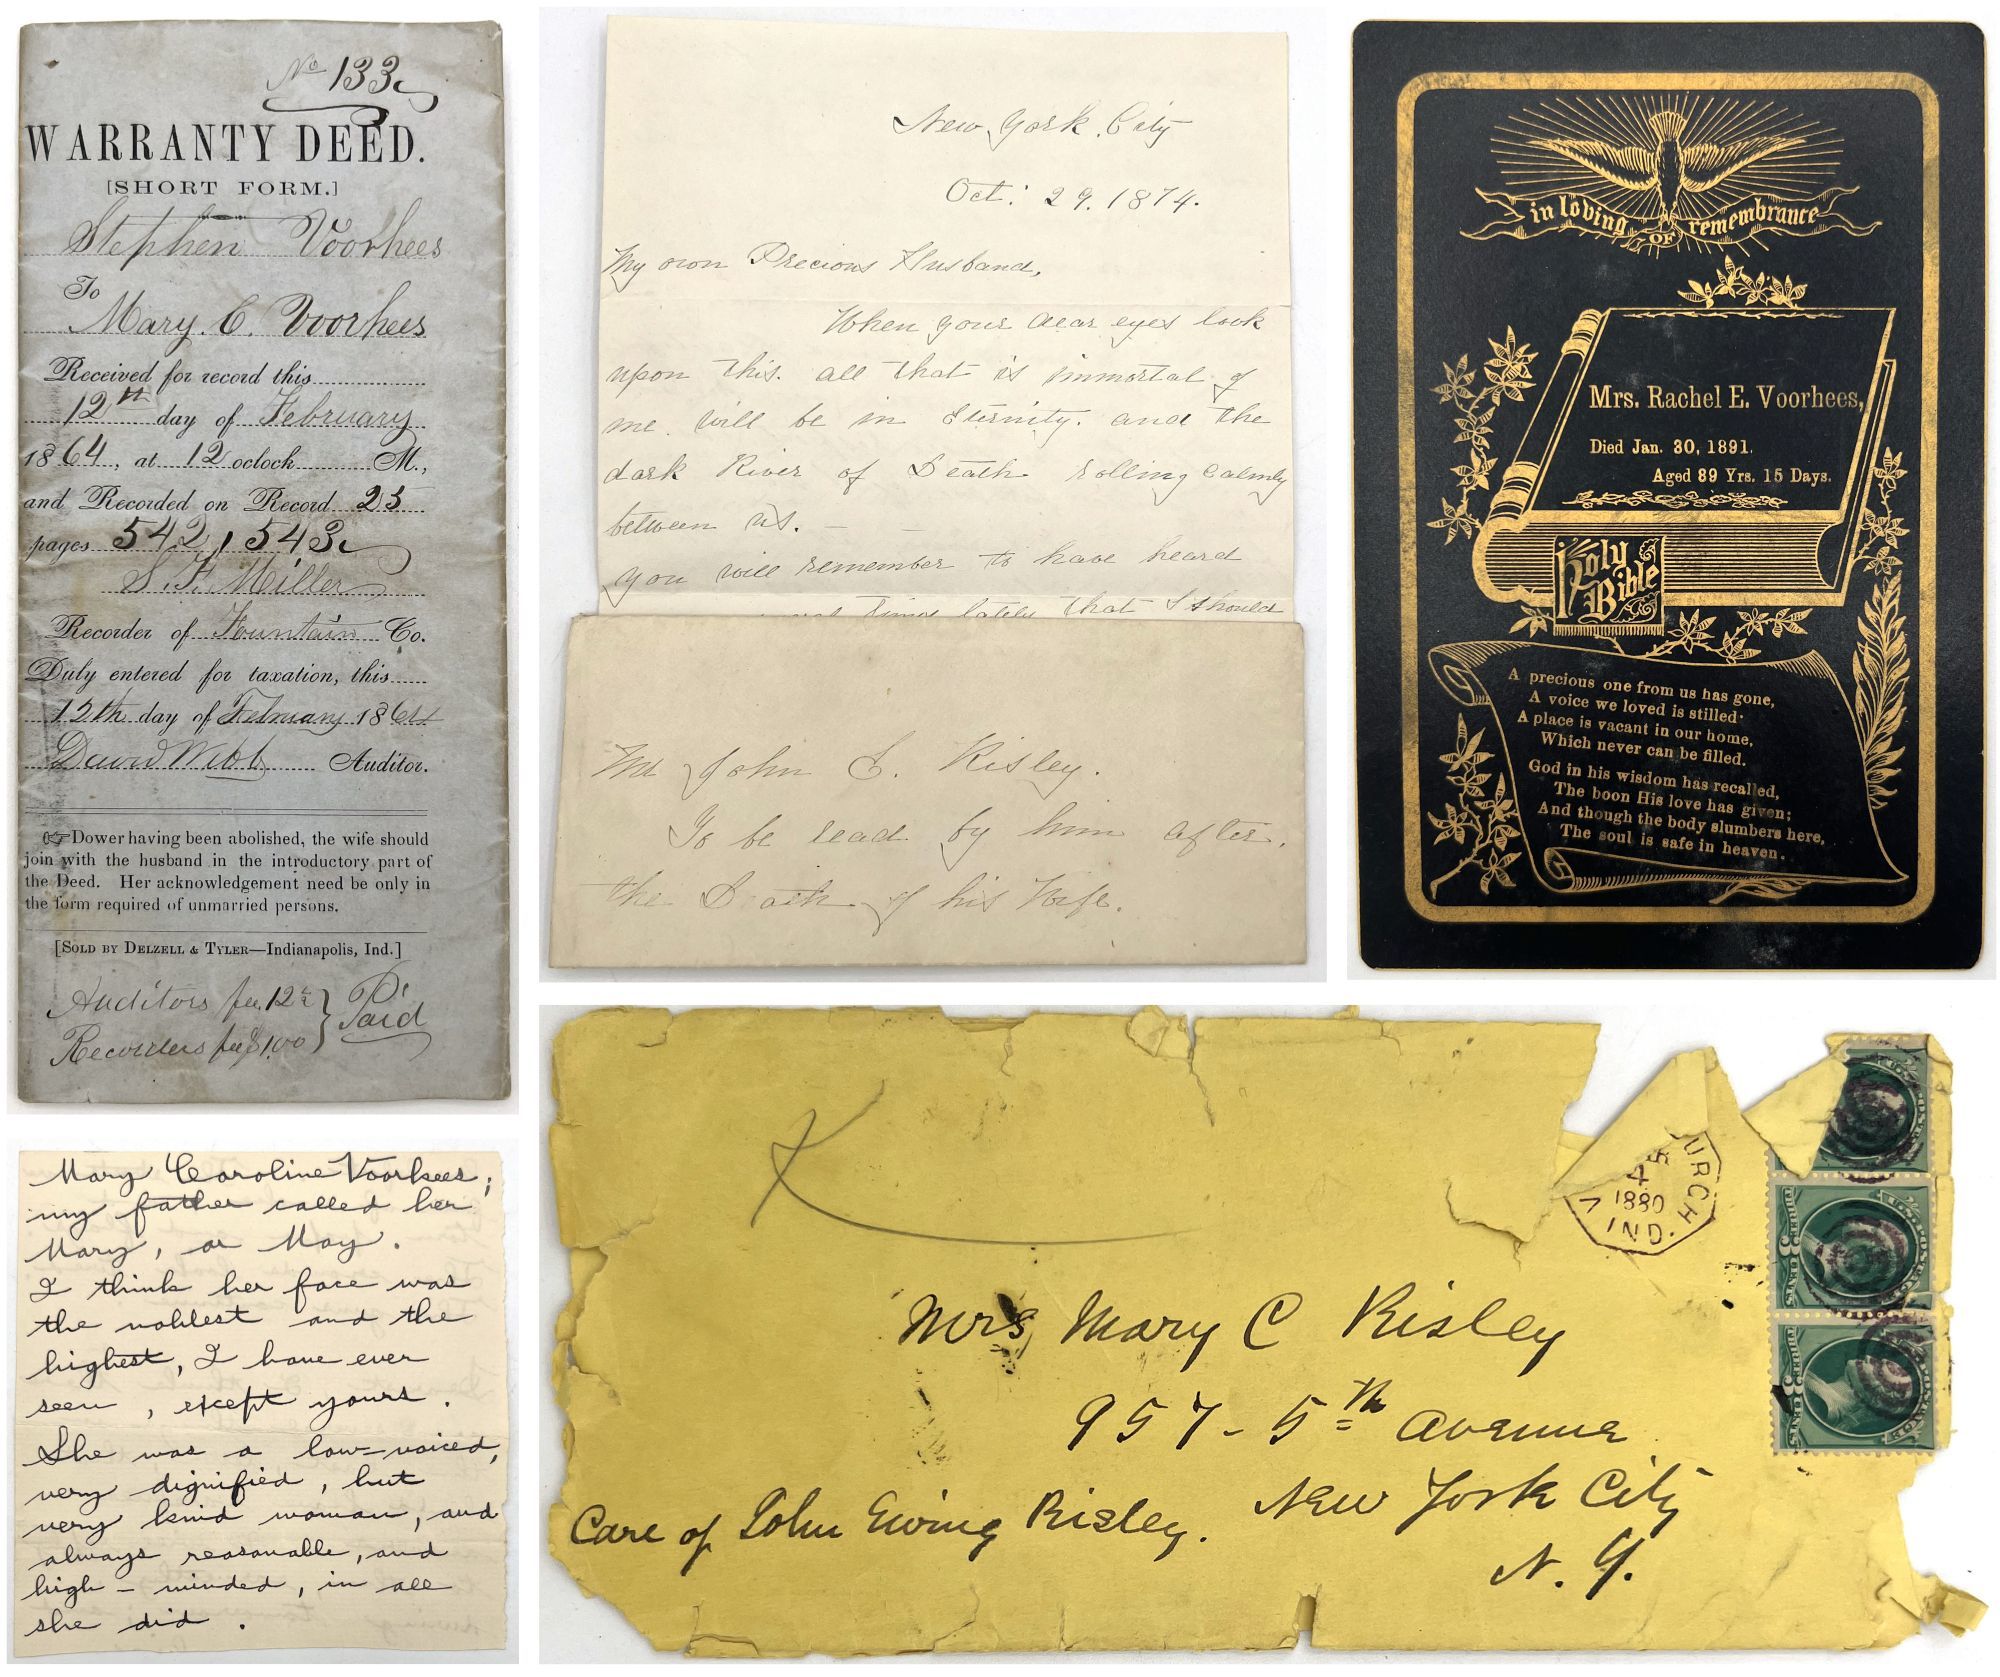 No 133
WARRANTY DEED.
[SHORT FORM.]
Stephen Voorhees
To
Mary. C. Voorhees
Received for record this
12th day of February
1864, at 12 oclock M.,
and Recorded on Record 25
pages 542, 543
S. F. Miller
Recorder of Fountain Co.
Duly entered for taxation, this
12th day of February 1864
David Webb Auditor.
☞ Dower having been abolished, the wife should
join with the husband in the introductory part of
the Deed. Her acknowledgement need be only in
the form required of unmarried persons.
[SOLD BY DELZELL & TYLER—Indianapolis, Ind.]
Auditors fee
Recorders fee $1.00
Paid
New York. City
Oct: 29. 1874.
My own Precious Husband,
When your dear eyes look
upon this. all that is immortal of
me. will be in Eternity. and the
dark River of Death rolling calmly
between us. — —
You will remember to have heard
times lately that I should
Mr John E. Risley.
To be read by him after.
the Death of his Wife.
in loving OF remembrance
Mrs. Rachel E. Voorhees,
Died Jan. 30, 1891.
Aged 89 Yrs. 15 Days.
Holy
Bible
A precious one from us has gone,
A voice we loved is stilled·
A place is vacant in our home,
Which never can be filled.
God in his wisdom has recalled,
The boon His love has given;
And though the body slumbers here,
The soul is safe in heaven.
Mary Caroline Voorhees;
my father called her
Mary, or May.
I think her face was
the noblest and the
highest, I have ever
seen, except yours.
She was a low-voiced,
very dignified, but
very kind woman, and
always reasonable, and
high-minded, in all
she did.
URCH
4
1880
IND.
Mrs Mary C Risley
957 - 5th Avenue
New York City
Care of John Ewing Risley.
N. Y.